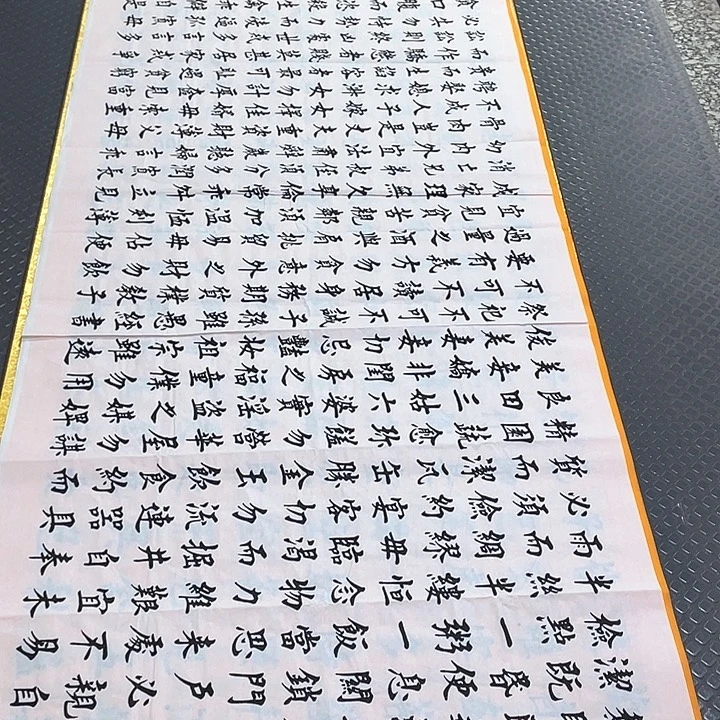 潔既昏便息關鎖門戶必親自
檢點一粥一飯當思來處不易
半絲半縷恒念物力維艱宜未
雨而綢繆毋臨渴而掘井自奉
必須儉約宴客切勿流連器具
質而潔瓦缶勝金玉飲食約而
精園蔬愈珍饈勿營華屋勿謀
良田三姑六婆實淫盜之媒婢
美妾嬌非閨房之福童僕勿用
俊美妻妾切忌豔妝祖宗雖遠
祭祀不可不誠子孫雖愚經書
不可不讀居身務期質樸教子
要有義方勿貪意外之財勿飲
過量之酒與肩挑貿易毋佔便
宜見貧苦親鄰須加溫恤刻薄
成家理無久享倫常乖舛立見
消亡兄弟叔侄須分多潤寡長
幼內外宜法肅辭嚴聽婦言乖
骨肉豈是丈夫重資財薄父母
不成人子嫁女擇佳婿毋索重
聘娶媳求淑女勿計厚奩見富
貴而生諂容者最可恥遇貧窮
而作驕態者賤莫甚居家戒爭
訟訟則終凶處世戒多言言多
必失勿恃勢力而凌逼孤寡毋
貪口